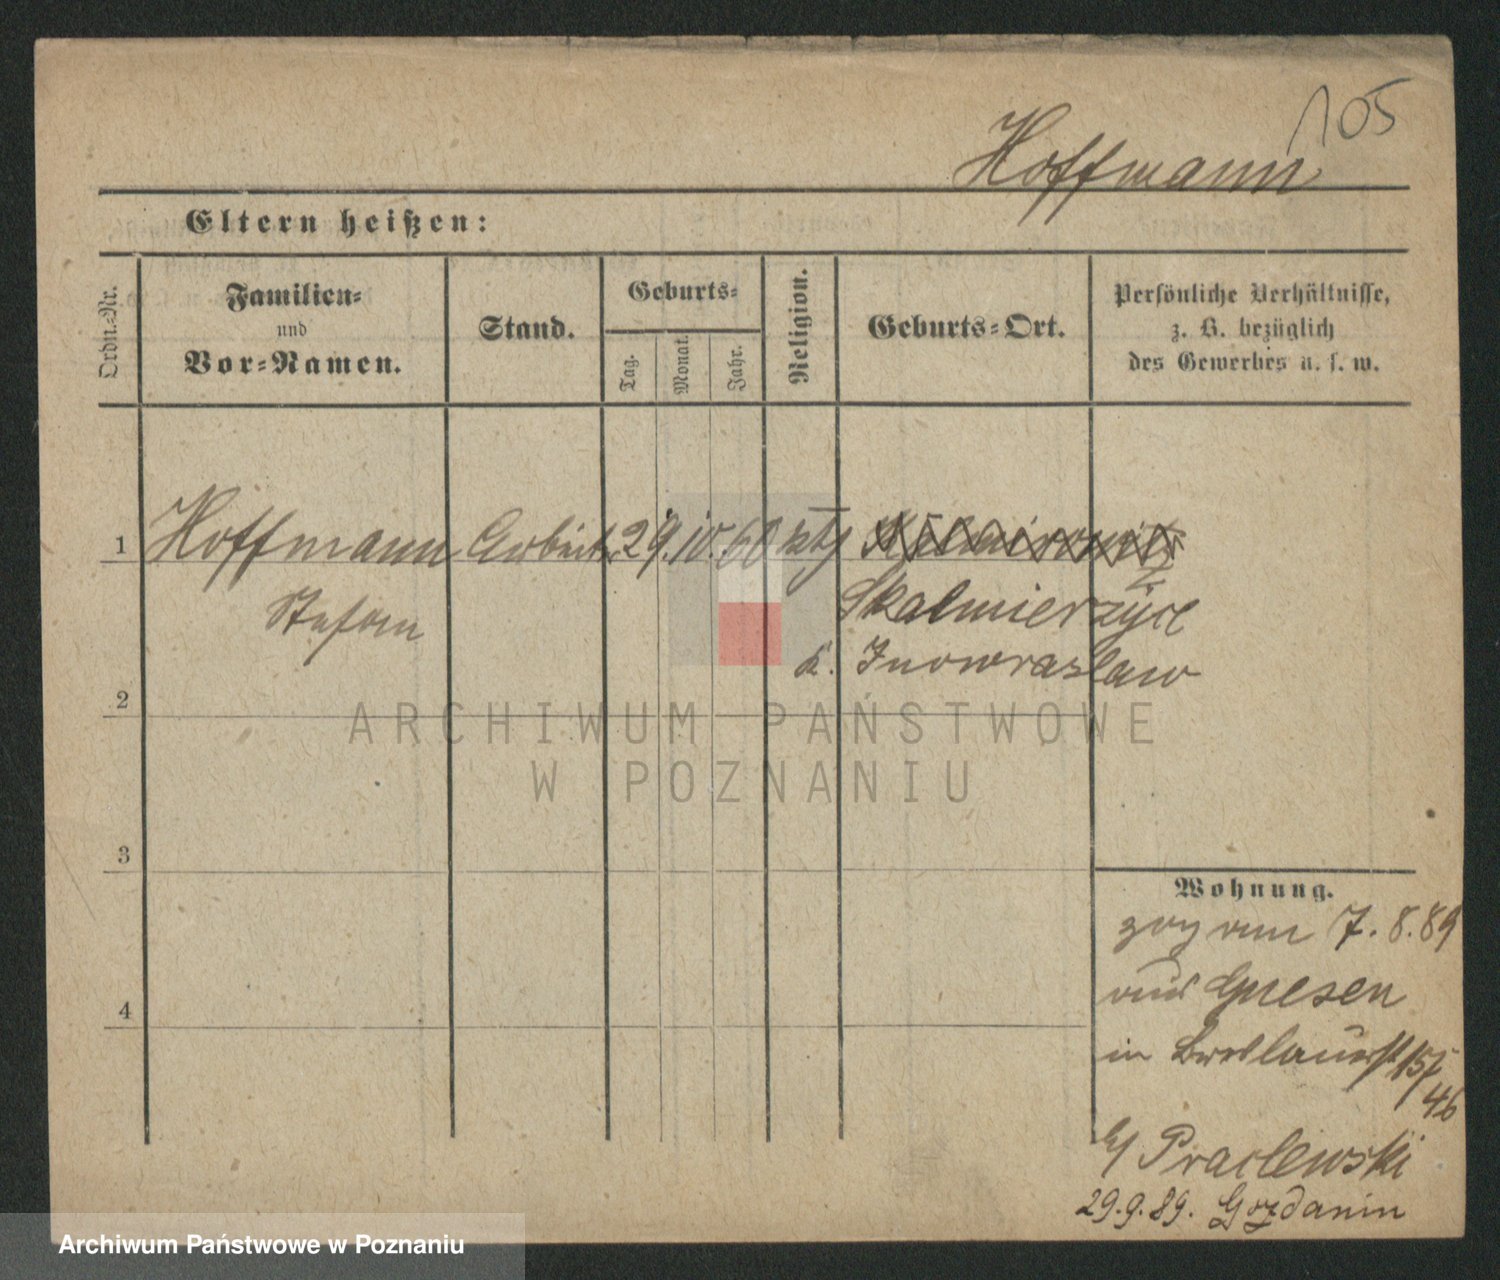 105
Hoffmann
Eltern heißen:
Ordn.-Nr.
Familien-
und
Vor-Namen.
Stand.
Geburts-
Tag.
Monat.
Jahr.
Religion.
Geburts-Ort.
Persönliche Verhältnisse,
z. B. bezüglich
des Gewerbes u. s. w.
1 Hoffmann Arbeiter 29. 10. 60 ktl
Stefan
Skalmierzyce
K. Inowraslaw
2
3
4
ARCHIWUM PAŃSTWOWE
W POZNANIU
Wohnung.
zog am 7. 8. 89
aus Gnesen
in Breslauerst 15/
46
b/ Praclewski
29.9.89. Gozdanin
Archiwum Państwowe w Poznaniu